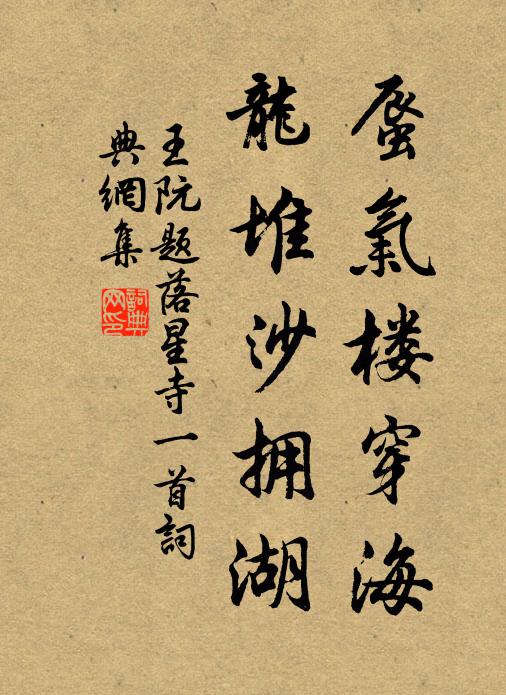 蜃氣楼穿海
龍堆沙拥湖
王阮题落星寺一首詞
典網集
詞典網印